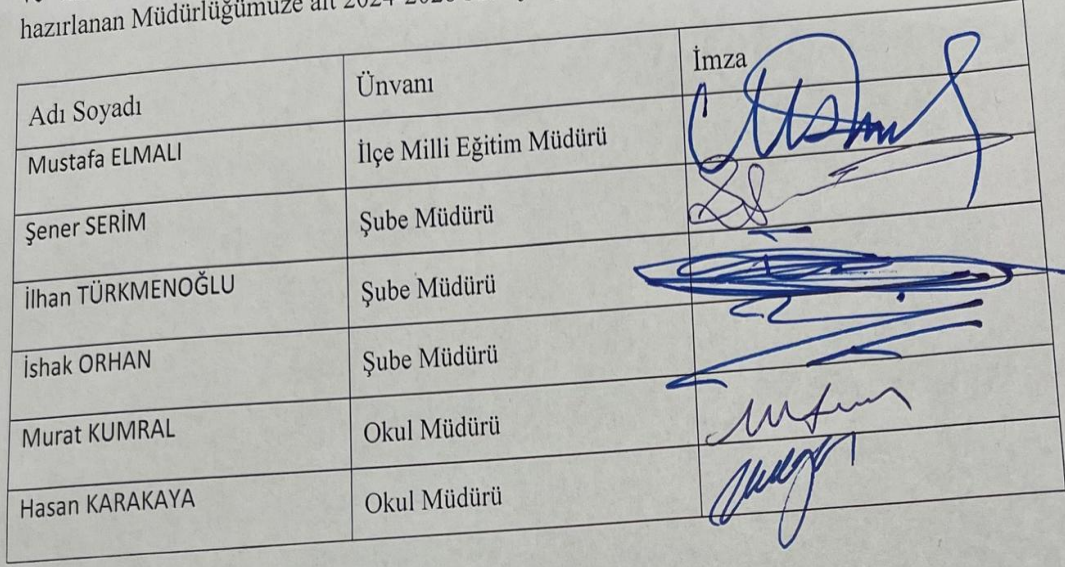 hazırlanan Müdürlüğümüze ait 2024-2028
Adı Soyadı Ünvanı İmza
Mustafa ELMALI İlçe Milli Eğitim Müdürü
Şener SERİM Şube Müdürü
İlhan TÜRKMENOĞLU Şube Müdürü
İshak ORHAN Şube Müdürü
Murat KUMRAL Okul Müdürü
Hasan KARAKAYA Okul Müdürü